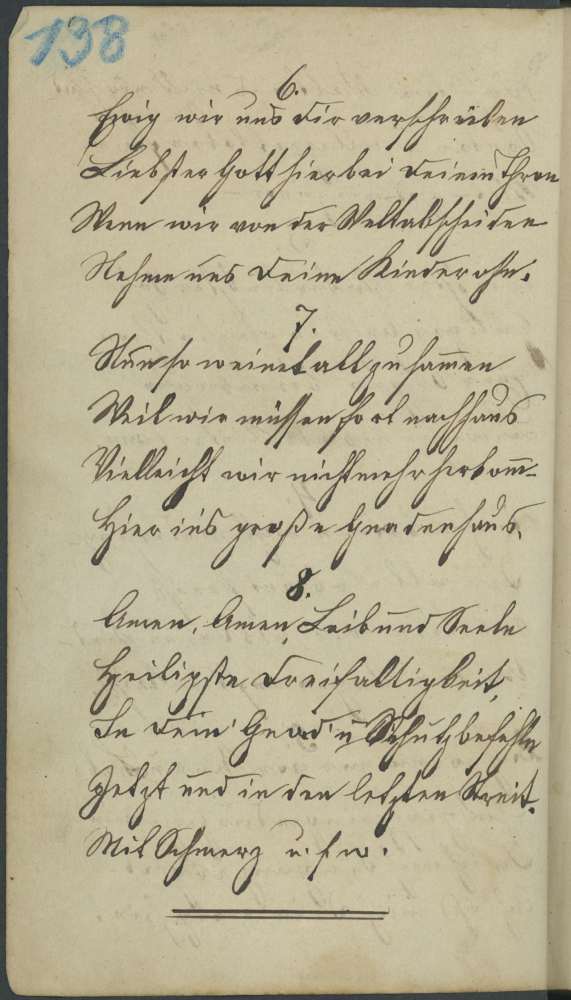 138
6.
Ewig wir uns dir verschreiben
Liebster Gott hier bei deinem Thron
Wenn wir von der Welt abscheiden
Nehme uns deine Kinder ohn.
7.
Nun so weinet all zusam̄en
Weil wir müssen fort nachhaus
Vielleicht wir nicht mehr herkom̄-
Hier in's große Gnadenhaus.
8.
Amen, Amen, Leib und Seele
Heiligste Dreifaltigkeit,
In dein' Gnad' ū Schutz befehle
Jetzt und in den letzten Streit.
Mit Schmerz u. s. w.